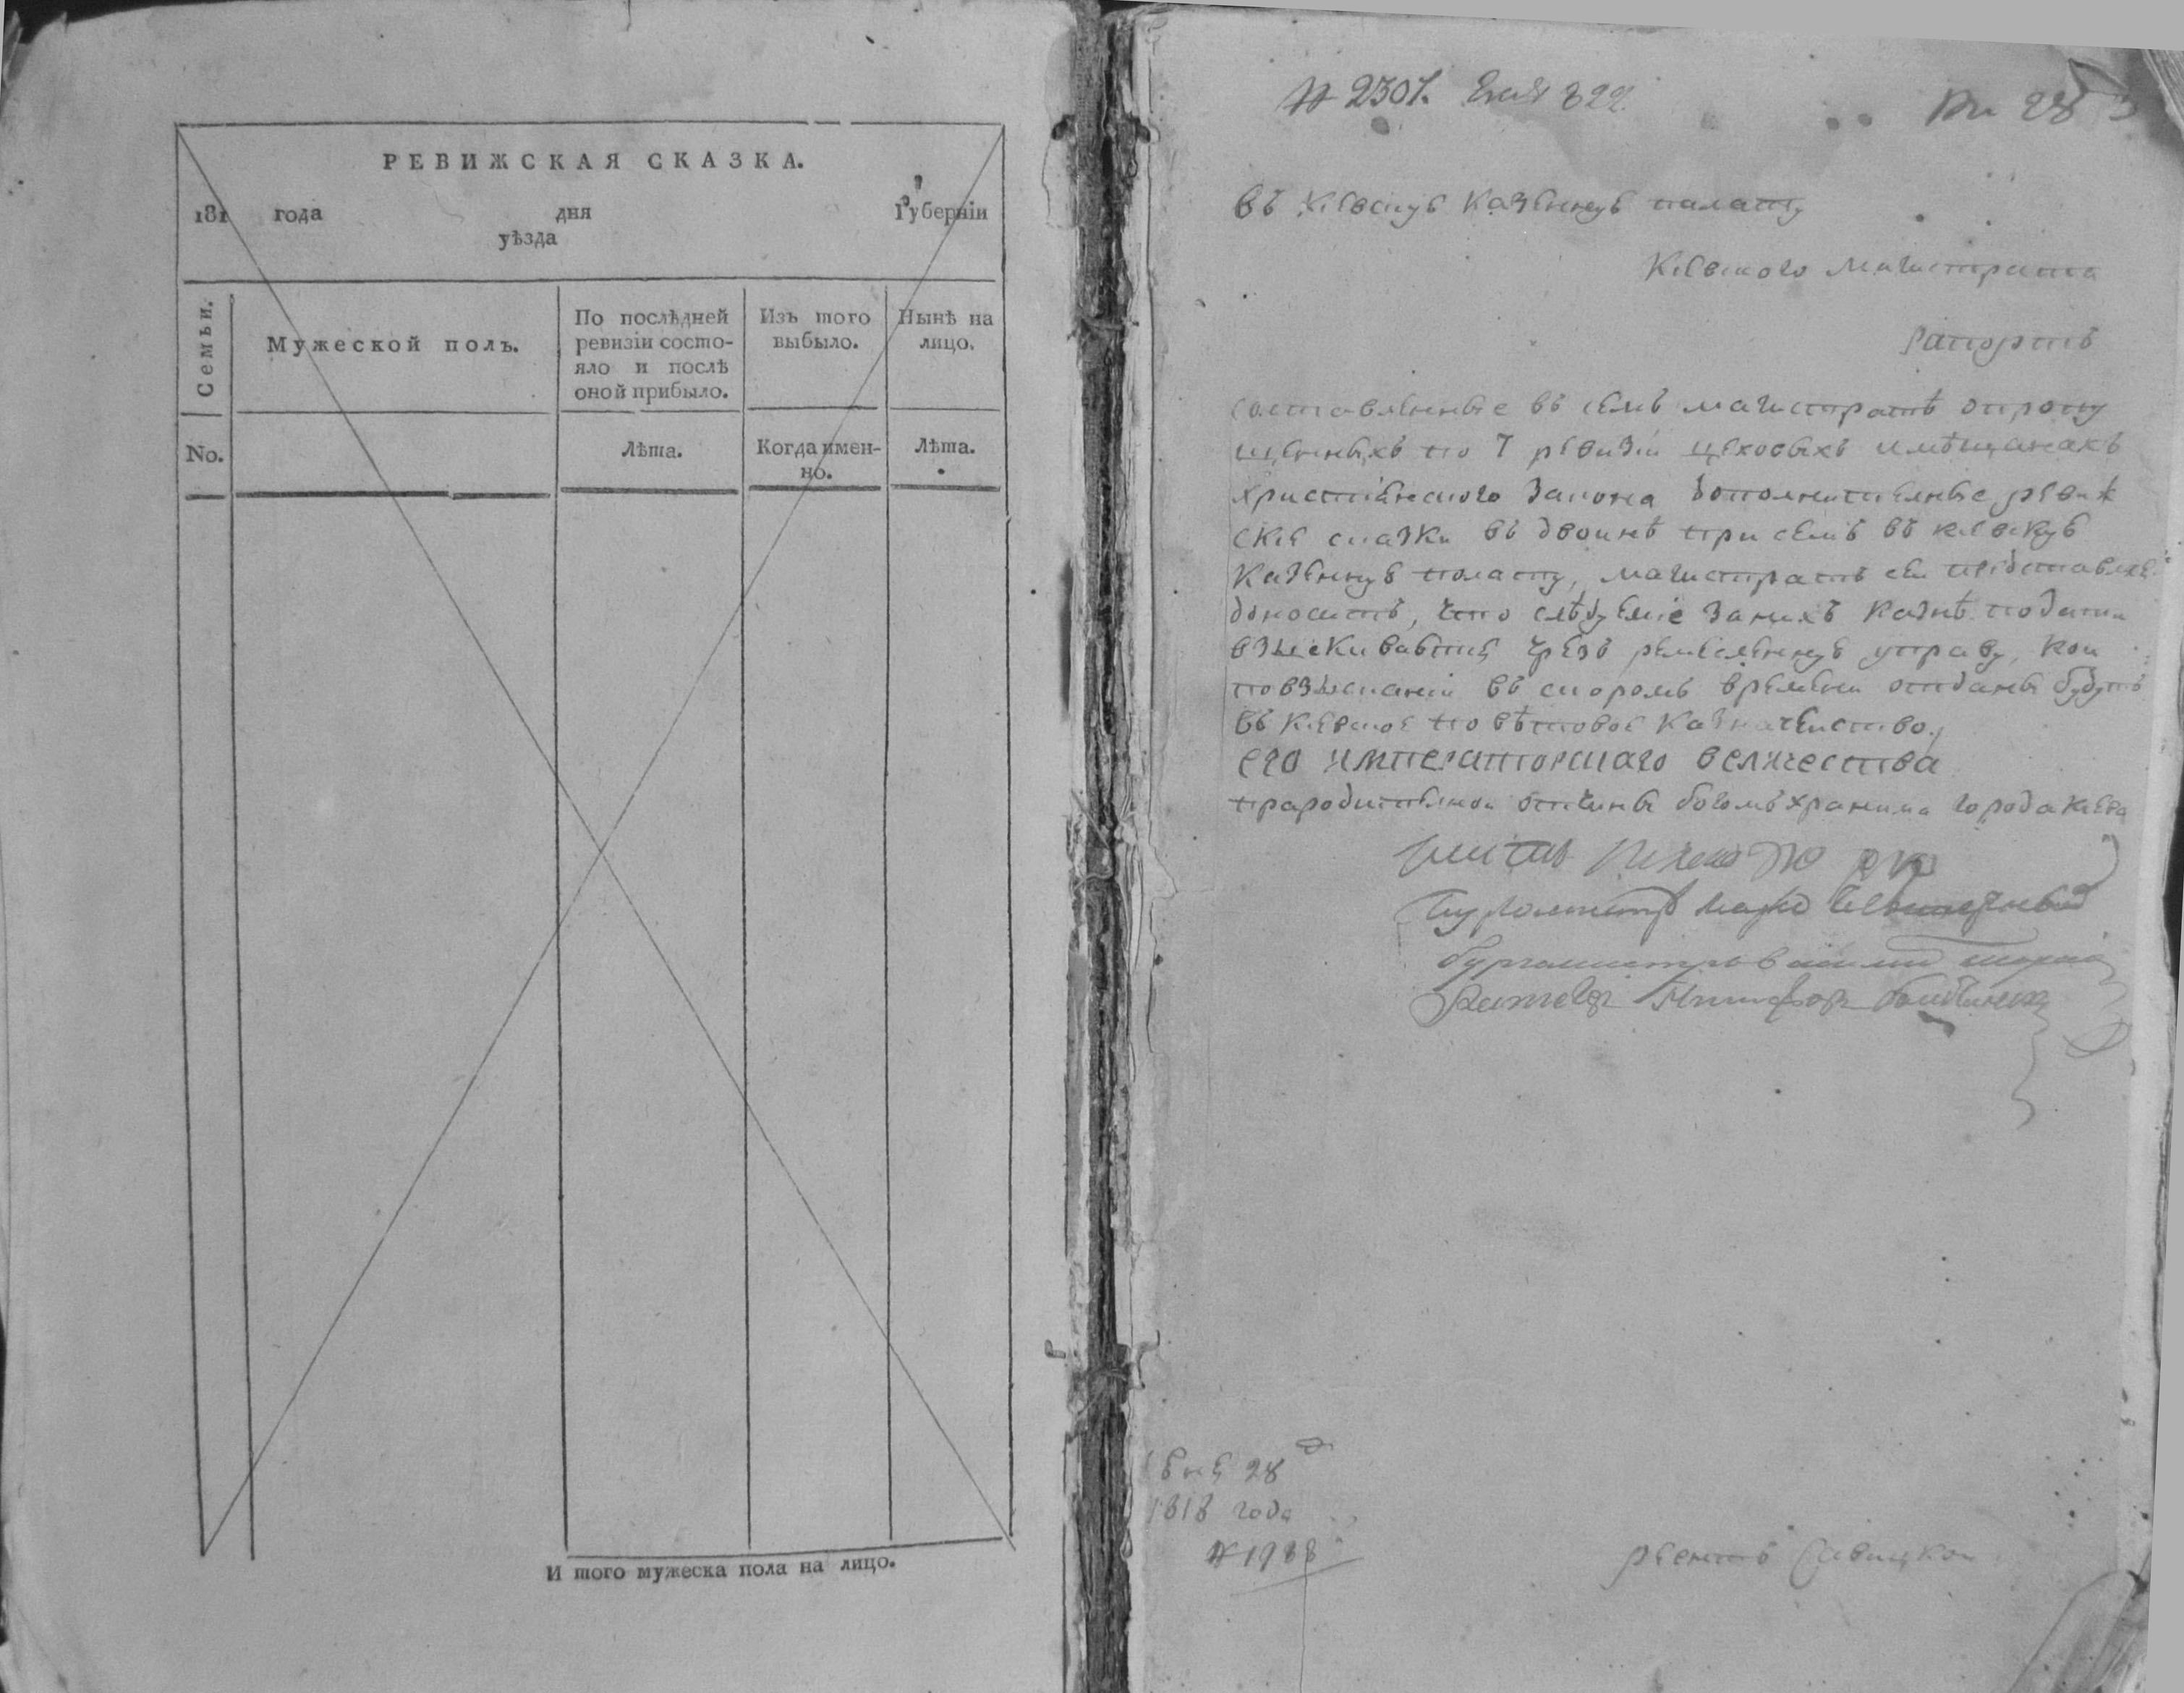 РЕВИЖСКАЯ СКАЗКА.
181 года дня Губерніи
уѣзда
Семьи.
Мужеской полъ.
По послѣдней
ревизіи состо-
яло и послѣ
оной прибыло.
Изъ того
выбыло.
Нынѣ на
лицо.
No.
Лѣта.
Когда имен-
но.
Лѣта.
И того мужеска пола на лицо.
№ 2307.
въ Кіевскую Казенную палату
Кіевского Магистрата
рапортъ
составленные въ семъ магистратѣ о пропу
щенныхъ по 7 ревизіи цеховыхъ и мѣщанахъ
христіянского закона дополнительные ревиж
скіе сказки въ двоинѣ при семъ въ кіевскую
казенную полату, магистратъ сеи
доноситъ, что слѣдуеміе за нихъ казнѣ подати
взыскиваютця чрезъ ремесленную управу, кои
по взысканіи въ скоромъ времени отданы будутъ
въ Кіевское поветовое Казначеиство,
его императорскаго величества
прародителнои отчины богомъ хранима города Кіева
бургомистръ
Ратсгер
28
1818 года
№ 1988